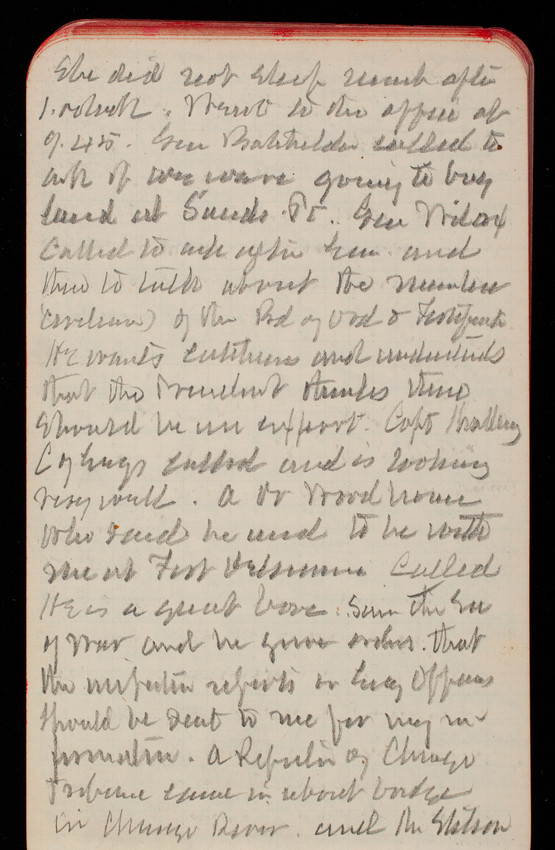 She did not sleep much after
1. oclock. Went to the office at
9.45. Gen Batchelder called to
ask if we were going to buy
land at Sands Pt. Gen Wilcox
called to ask after Gen and
then to talk about the number
(civilian) of the Bd of Ord & Fortificatn
He wants and understands
that the President thinks there
should be an expert. Capt
C of Engs called and is looking
very well. A Dr Woodhouse
who said he used to be with
me at Fort called
He is a great bore. Saw the Sec
of War and he gave orders that
the reports on Engs Officers
should be sent to me for my in-
formation. A Reporter of Chicago
Tribune came in about bridge
in Chicago River. and Mr Stetson